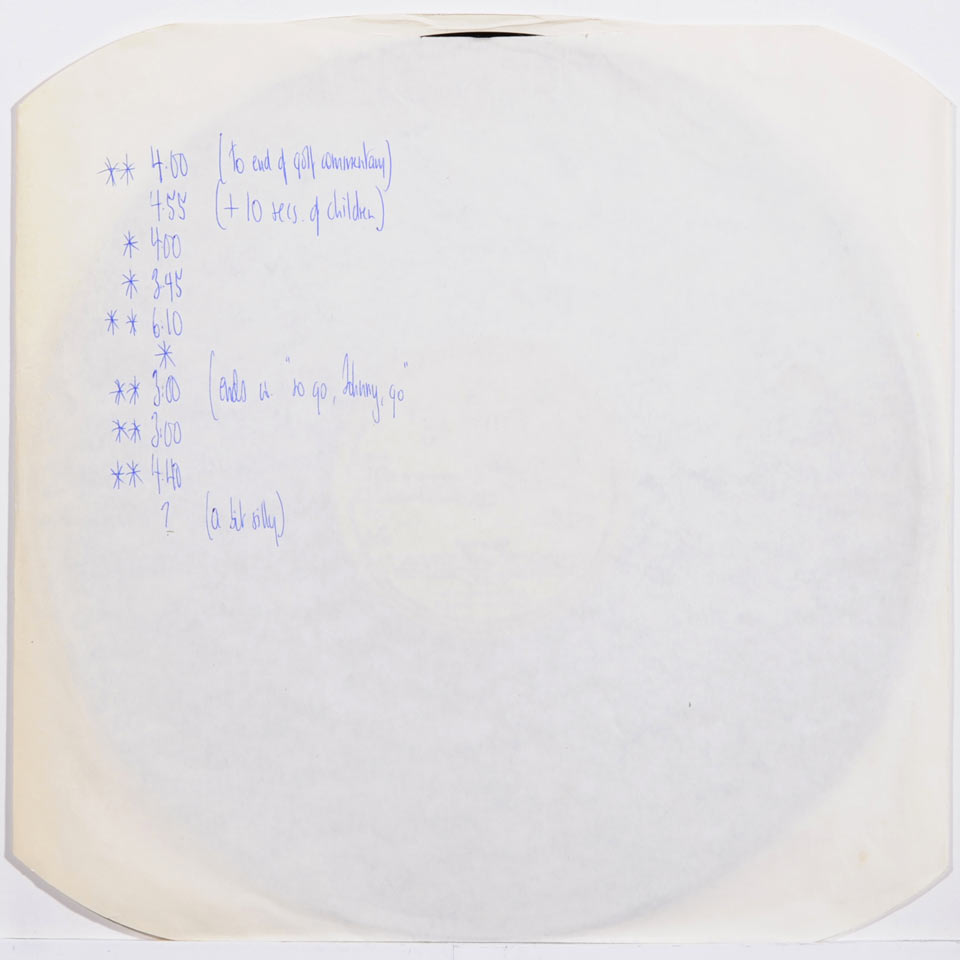 ** 4.00 (to end of golf commentary)
4.55 (+ 10 secs. of children)
* 4.00
* 3.45
** 6.10
*
** 3.00 (ends w. "so go, Johnny, go"
** 3.00
** 4.40
? (a bit silly)